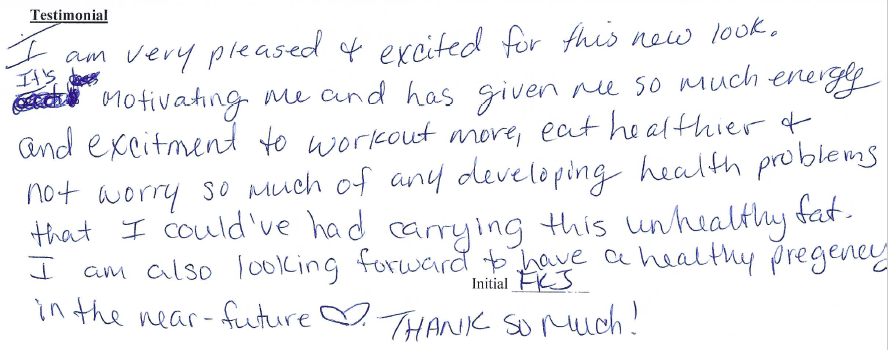 Testimonial
I am very pleased & excited for this new look.
It's motivating me and has given me so much energy
and excitment to workout more, eat healthier &
not worry so much of any developing health problems
that I could've had carrying this unhealthy fat.
I am also looking forward to have a healthy pregency
Initial FKJ
in the near-future ♡. THANK so much!